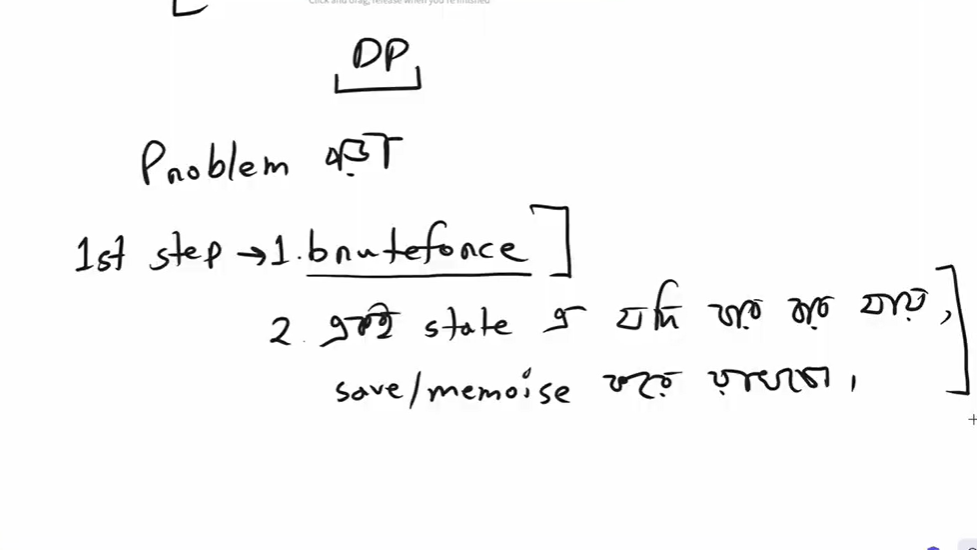 Click and drag, release when you're finished
DP
Problem
1st step → 1. bruteforce
2. একই state এ যদি বার বার যায়,
save/memoise করে রাখবো।